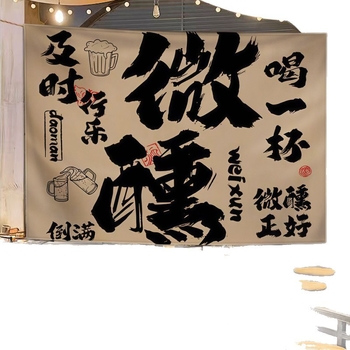 及时
行乐
daoman
倒满
微
醺
weixun
喝一杯
微醺
正好